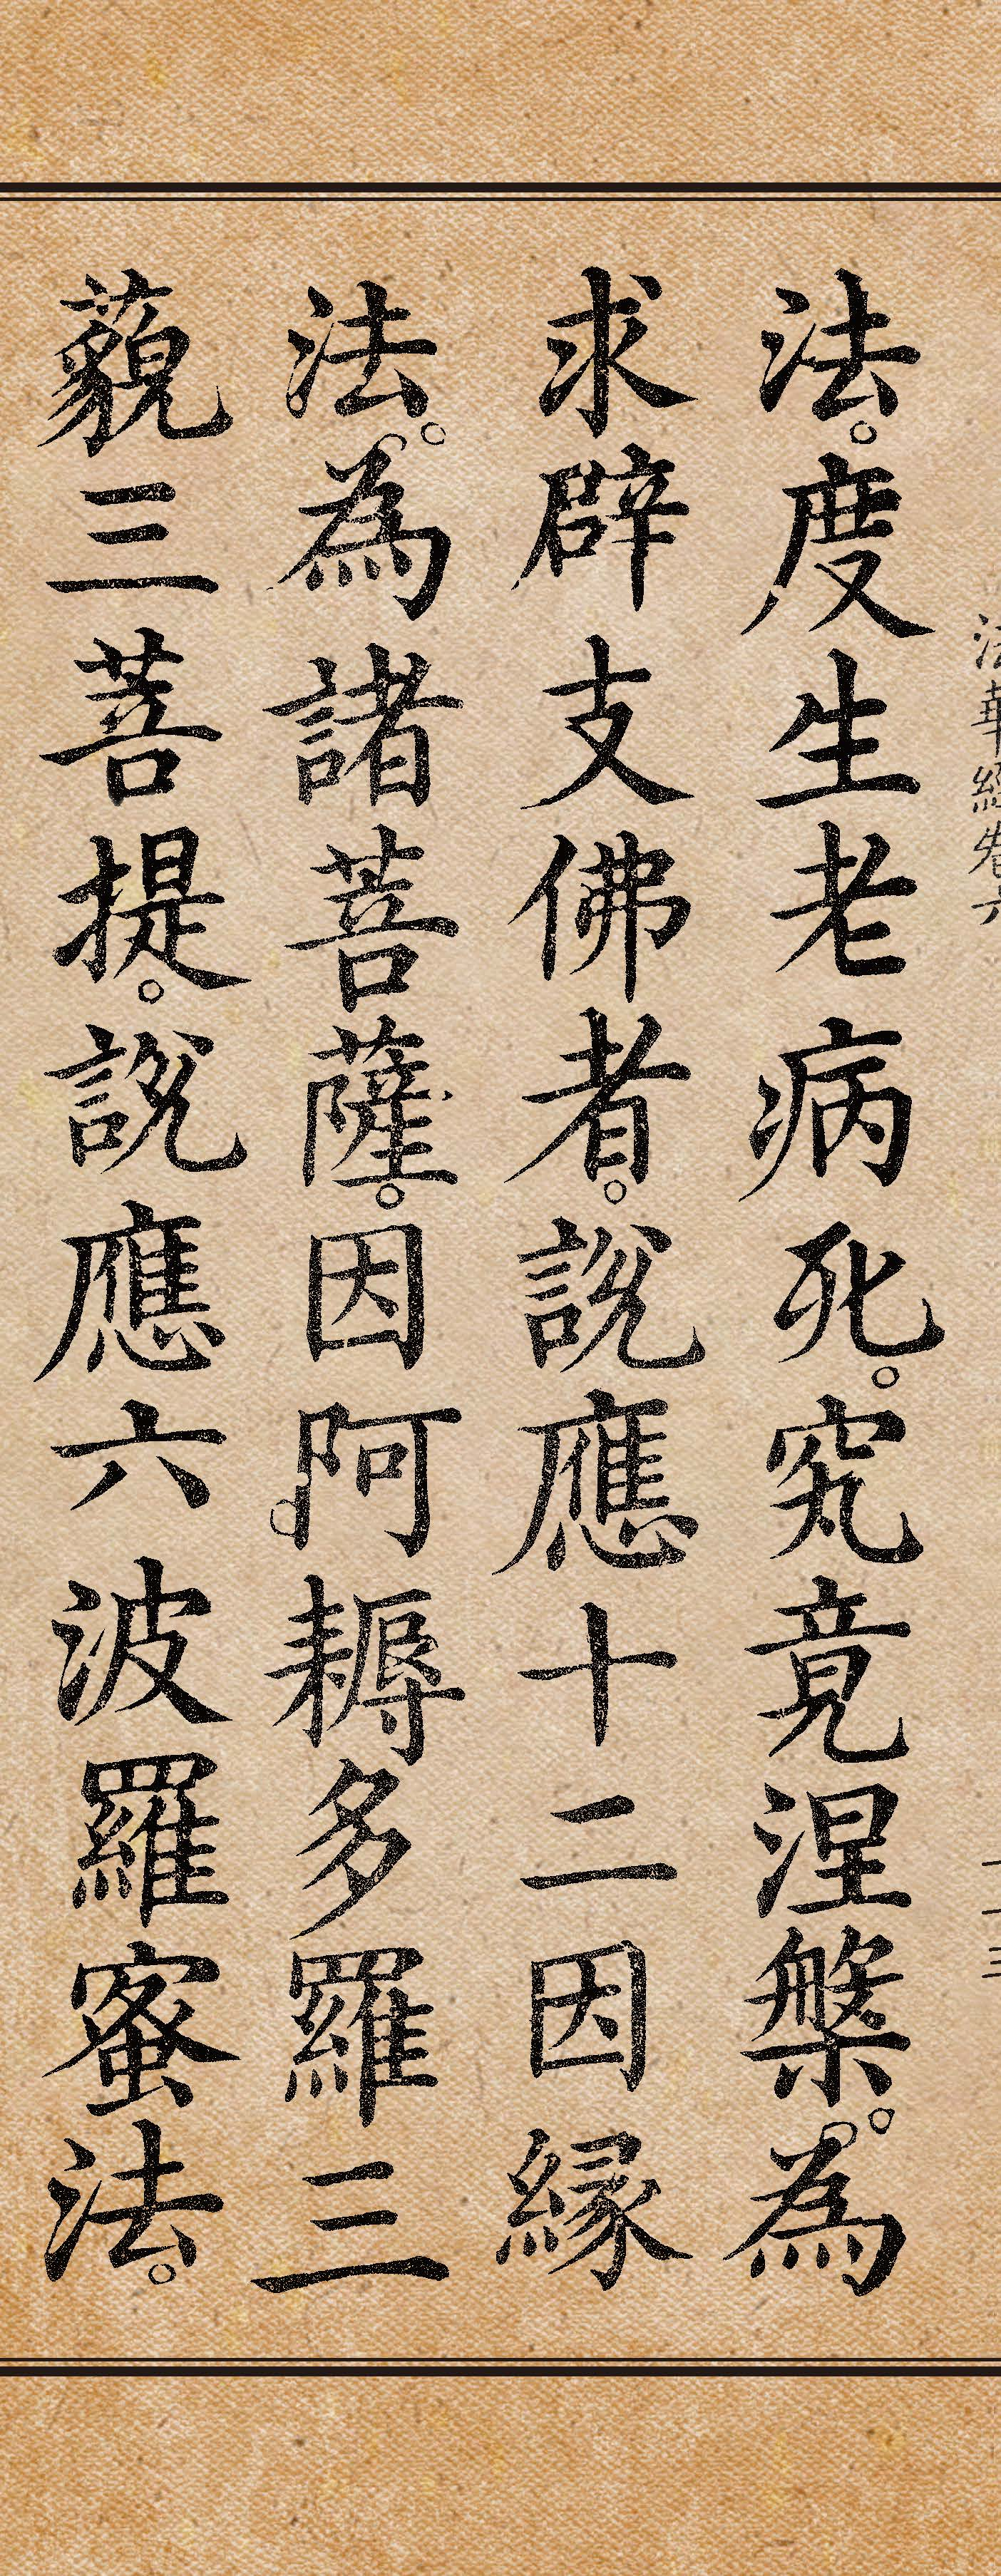 法華經卷六
二十三
法。度生老病死。究竟涅槃。為
求辟支佛者。說應十二因緣
法。為諸菩薩。因阿耨多羅三
藐三菩提。說應六波羅蜜法。